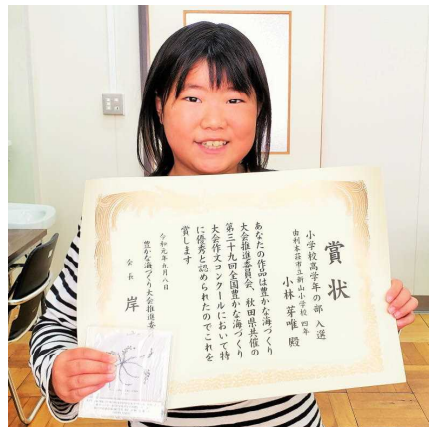 賞状
小学校高学年の部 入選
由利本荘市立新山小学校 四年
小林 芽唯 殿
あなたの作品は豊かな海づくり
大会推進委員会、秋田県共催の
第三十九回全国豊かな海づくり
大会作文コンクールにおいて特
に優秀と認められたのでこれを
賞します
令和元年五月八日
豊かな海づくり大会推進委
会長 岸